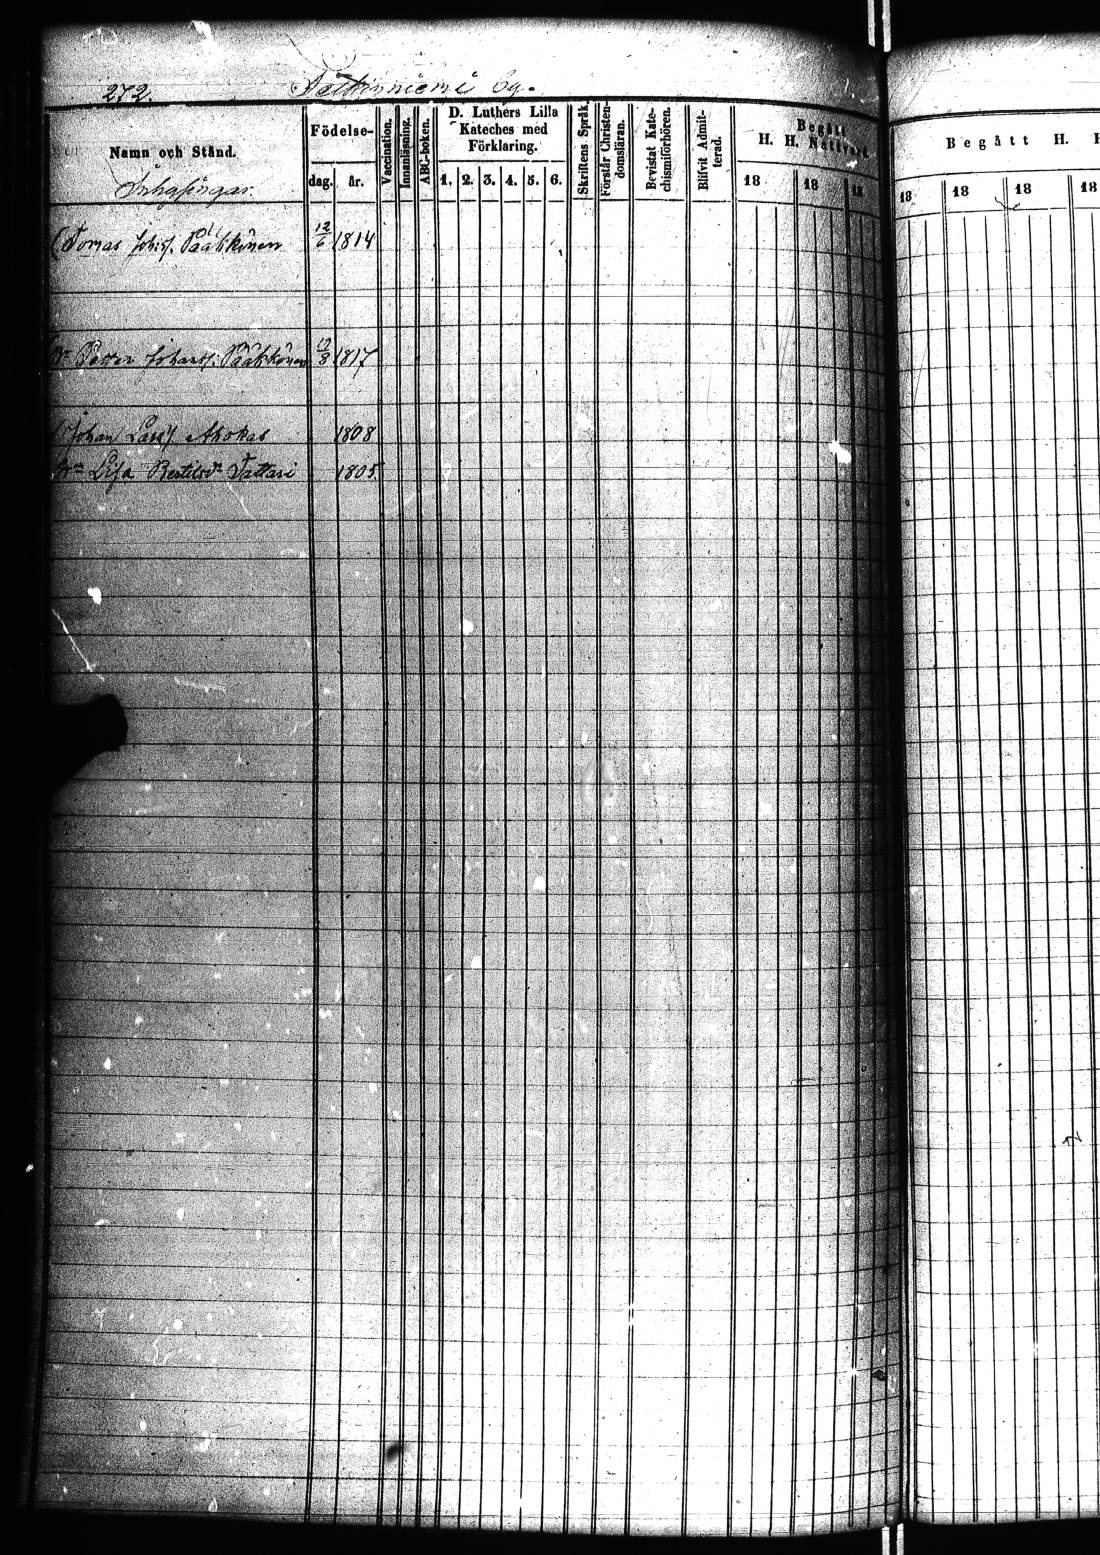 272. Sätkinniemi by.
Namn och Stånd.
Inhysingar.
Födelse-
dag. år.
Vaccination.
Innanläsning.
ABC-boken.
D. Luthers Lilla
Kateches med
Förklaring.
1. 2. 3. 4. 5. 6.
Skriftens Språk.
Förstår Christen-
domsläran.
Bevistat Kate-
chismiförhören.
Blifvit Admit-
terad.
Begått
H. H. Nattvard
18 18 18
Begått H. H
18 18 18 18
Tomas Johss. Pääkkönen 12/6 1814
Petter Johanss. Pääkkönen 1817
Johan Larss. Ahokas 1808
Lisa Bertilsdr Tattari 1805